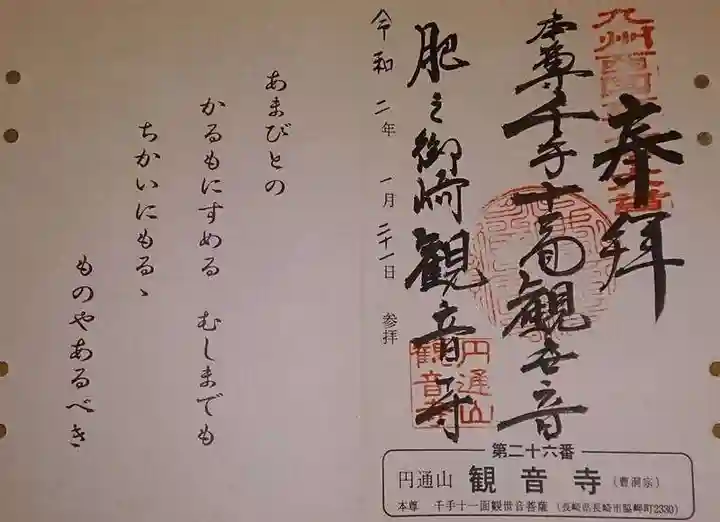 奉拝
九州西国
本尊千手十一面観世音
肥之御崎観音寺
円通山
観音寺
令和二年一月二十一日 参拝
あまびとの
かるもにすめる むしまでも
ちかいにもるゝ
ものやあるべき
第二十六番
円通山 観音寺 (曹洞宗)
本尊 千手十一面観世音菩薩 (長崎県長崎市脇岬町2330)